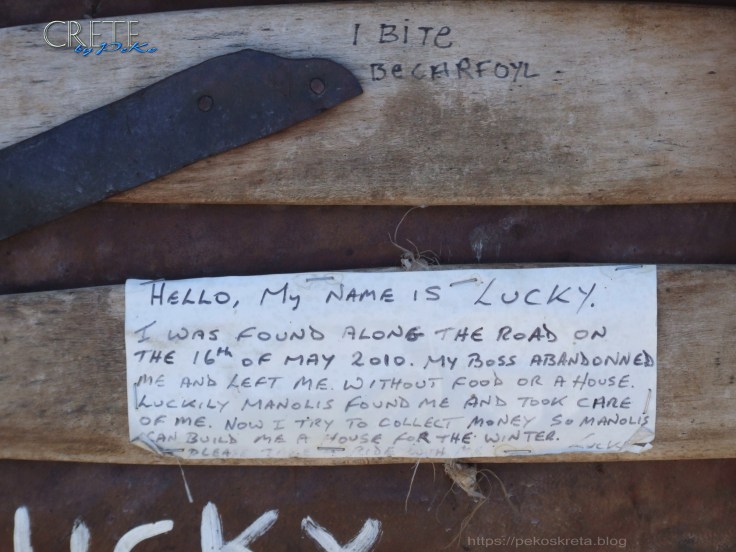 CRETE
by PeKo
I BiTe
BeCARFOYL
HELLO, My NAME IS LUCKY.
I WAS FOUND ALONG THE ROAD ON
THE 16th OF MAY 2010. MY BOSS ABANDONNED
ME AND LEFT ME. WITHOUT FOOD OR A HOUSE.
LUCKILY MANOLIS FOUND ME AND TOOK CARE
OF ME. NOW I TRY TO COLLECT MONEY SO MANOLIS
CAN BUILD ME A HOUSE FOR THE WINTER.
LUCKY
LUCKY
https://pekoskreta.blog